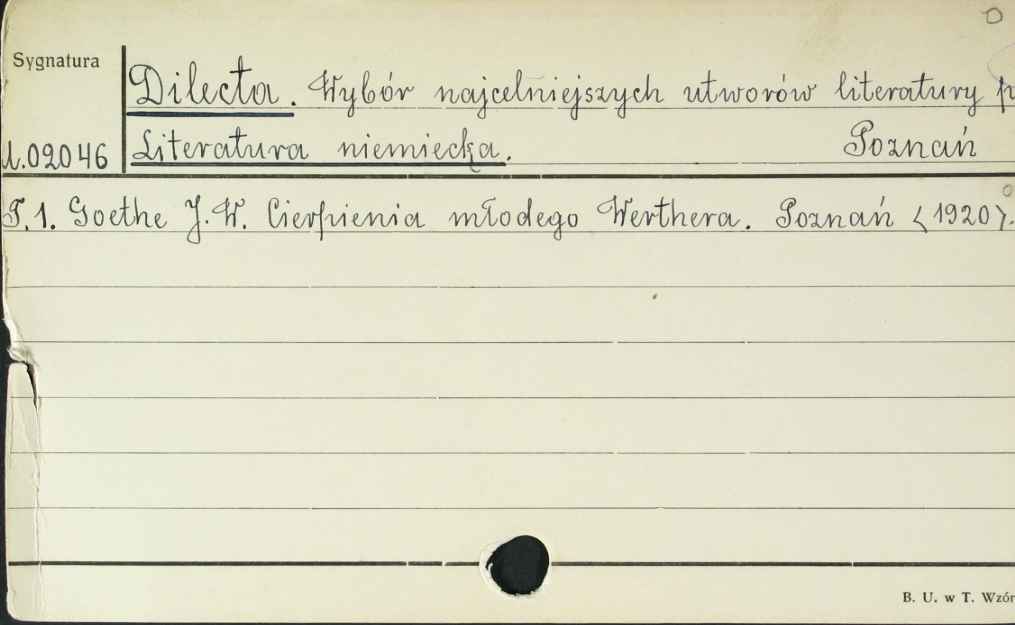 Sygnatura
Dilecta. Wybór najcelniejszych utworów literatury
02046 Literatura niemiecka. Poznań
T.1. Goethe J.W. Cierpienia młodego Werthera. Poznań <1920>.
B. U. w T. Wzór